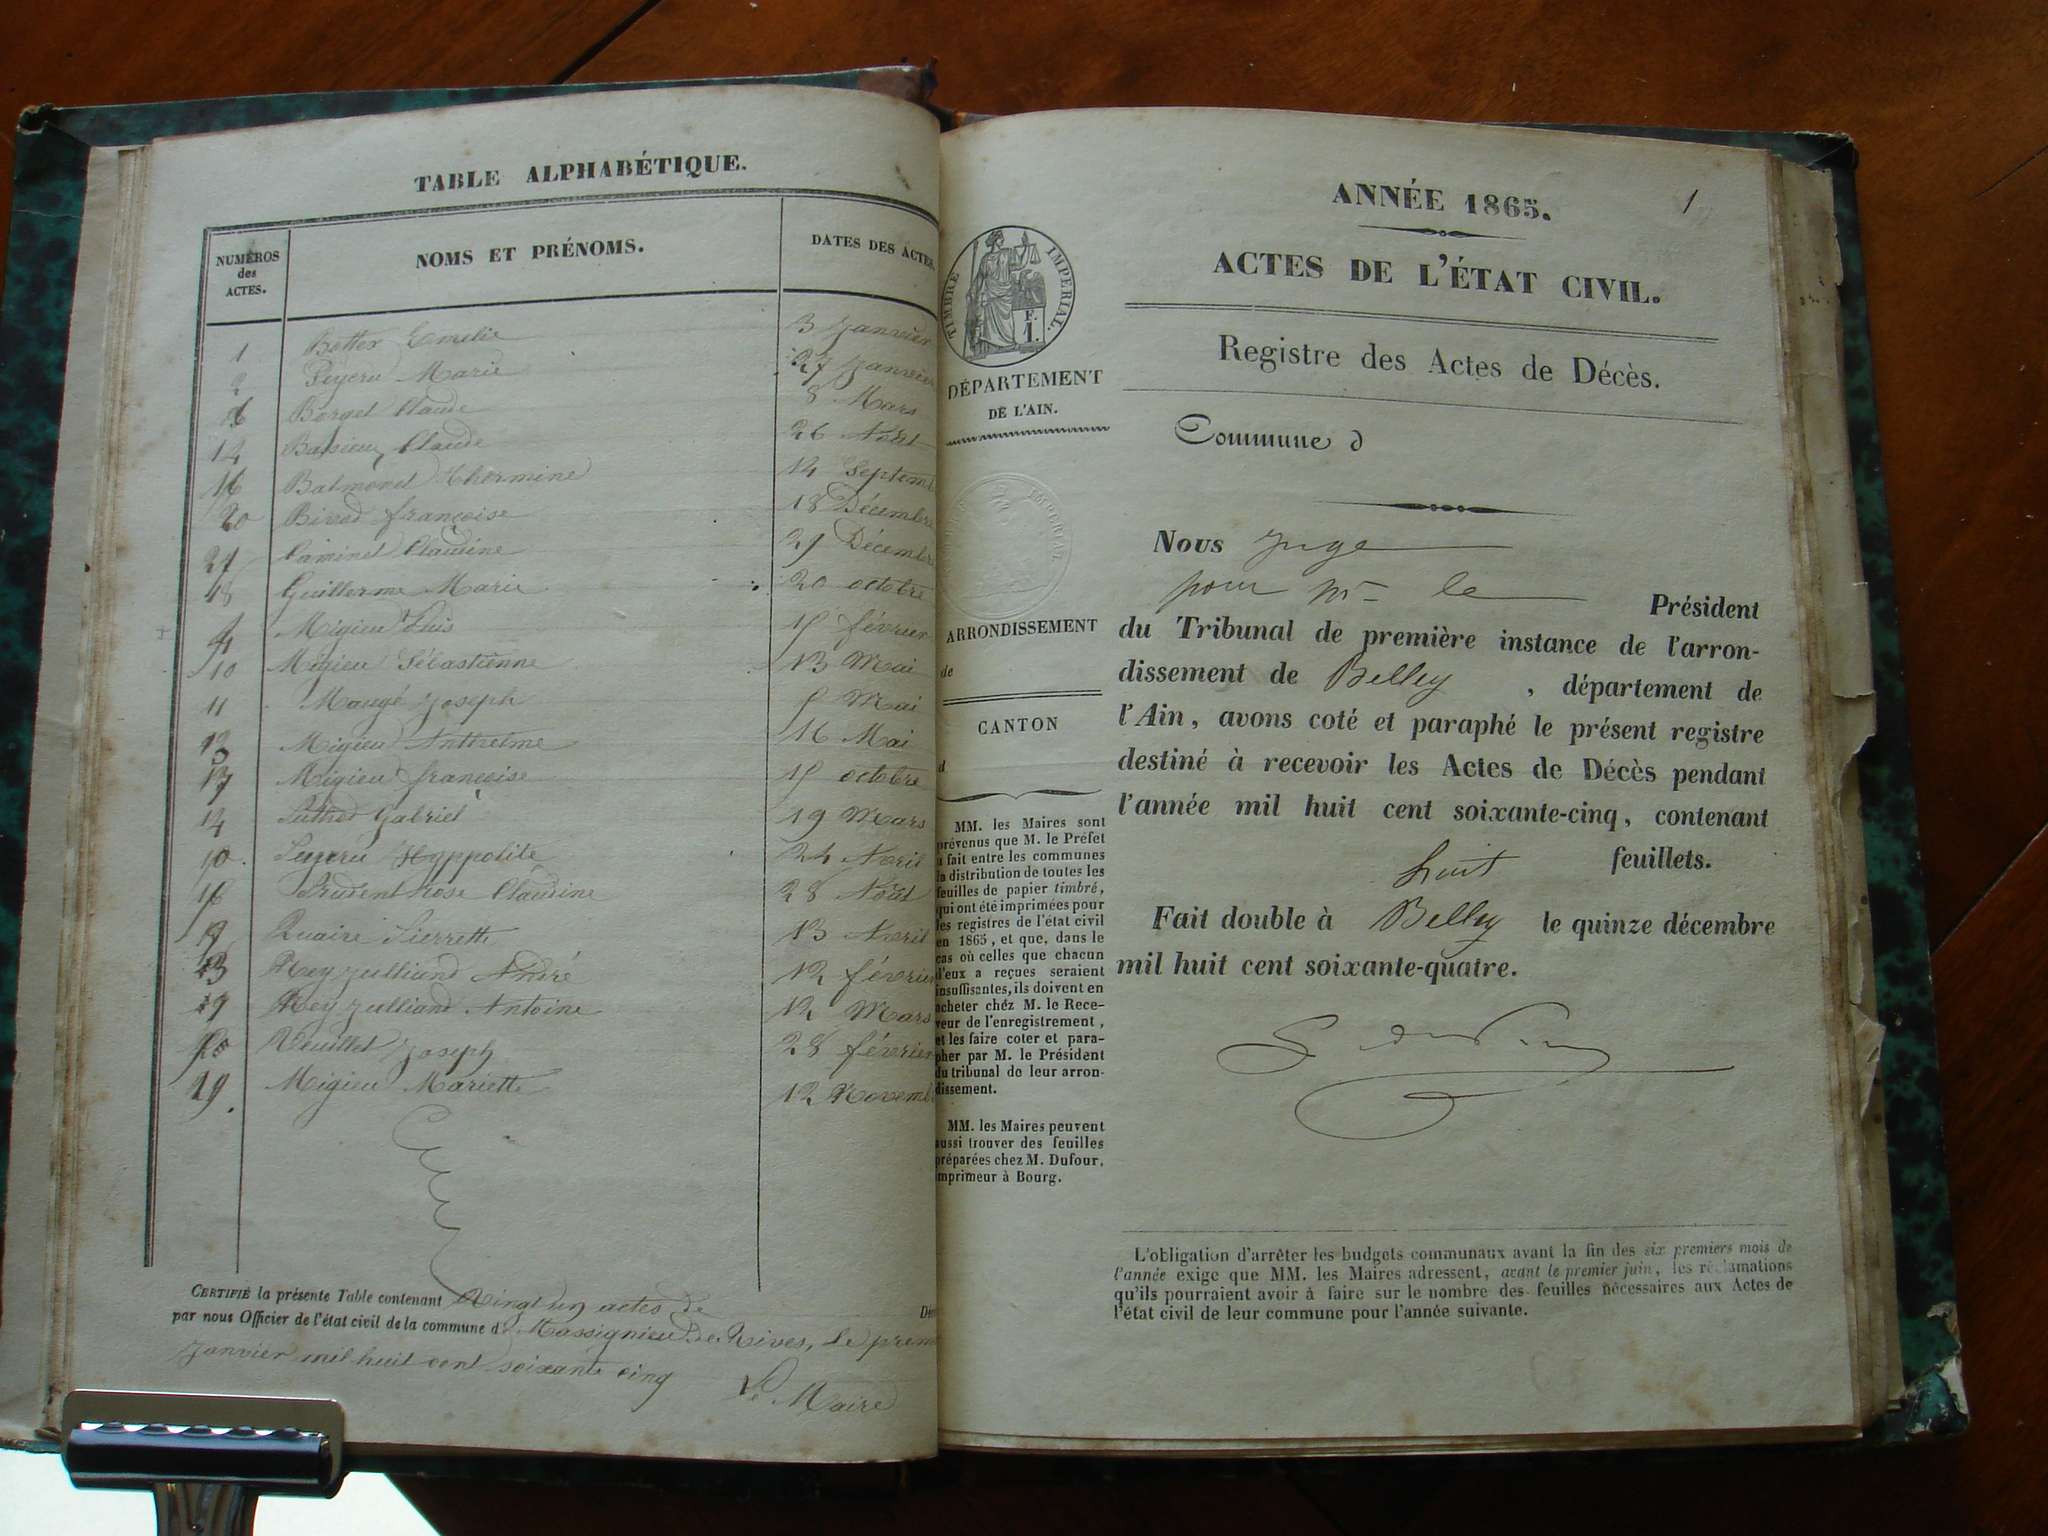 TABLE ALPHABÉTIQUE.
NUMÉROS
des
ACTES.
NOMS ET PRÉNOMS.
DATES DES ACTES.
1 Bottex Emelie 3 Janvier
2 Peyern Marie 27 Janvier
Borget Claude 8 Mars
14 Claude 26 Août
16 Balmonet Thermine 14 Septemb
20 Bivod françoise 18 Décembre
21 Caminet Claudine 29 Décembre
18 Guillerme Marie 20 octobre
4 Migieu Luis février
10 Migieu Sébastienne 13 Mai
11 Maugé Joseph Mai
13 Migieu Anthelme 16 Mai
17 Migieu françoise octobre
Gabriel 19 Mars
10 Hyppolite 24 Avril
Prudent Rose Claudine 28 Août
Quaire Pierrette 13 Avril
3 Reyzulliand André 12 février
Reyzulliand Antoine 12 Mars
Veuillet Joseph 28 février
19. Migieu Mariette 12 Novemb
CERTIFIÉ la présente Table contenant Vingt un actes de Déc
par nous Officier de l'état civil de la commune d Massignieu de Rives, le prem
Janvier mil huit cent soixante cinq
Le Maire
1
ANNÉE 1865.
ACTES DE L'ÉTAT CIVIL.
Registre des Actes de Décès.
TIMBRE IMPERIAL.
F.
1.
DÉPARTEMENT
DE L'AIN.
ARRONDISSEMENT
de
CANTON
d
MM. les Maires sont
prévenus que M. le Préfet
a fait entre les communes
la distribution de toutes les
feuilles de papier timbré,
qui ont été imprimées pour
les registres de l'état civil
en 1865, et que, dans le
cas où celles que chacun
d'eux a reçues seraient
insuffisantes, ils doivent en
acheter chez M. le Rece-
veur de l'enregistrement,
et les faire coter et para-
pher par M. le Président
du tribunal de leur arron-
dissement.
MM. les Maires peuvent
aussi trouver des feuilles
préparées chez M. Dufour,
imprimeur à Bourg.
Commune d
Nous Juge
pour Mr le Président
du Tribunal de première instance de l'arron-
dissement de Belley, département de
l'Ain, avons coté et paraphé le présent registre
destiné à recevoir les Actes de Décès pendant
l'année mil huit cent soixante-cinq, contenant
huit feuillets.
Fait double à Belley le quinze décembre
mil huit cent soixante-quatre.
L'obligation d'arrêter les budgets communaux avant la fin des six premiers mois de
l'année exige que MM. les Maires adressent, avant le premier juin, les réclamations
qu'ils pourraient avoir à faire sur le nombre des feuilles nécessaires aux Actes de
l'état civil de leur commune pour l'année suivante.